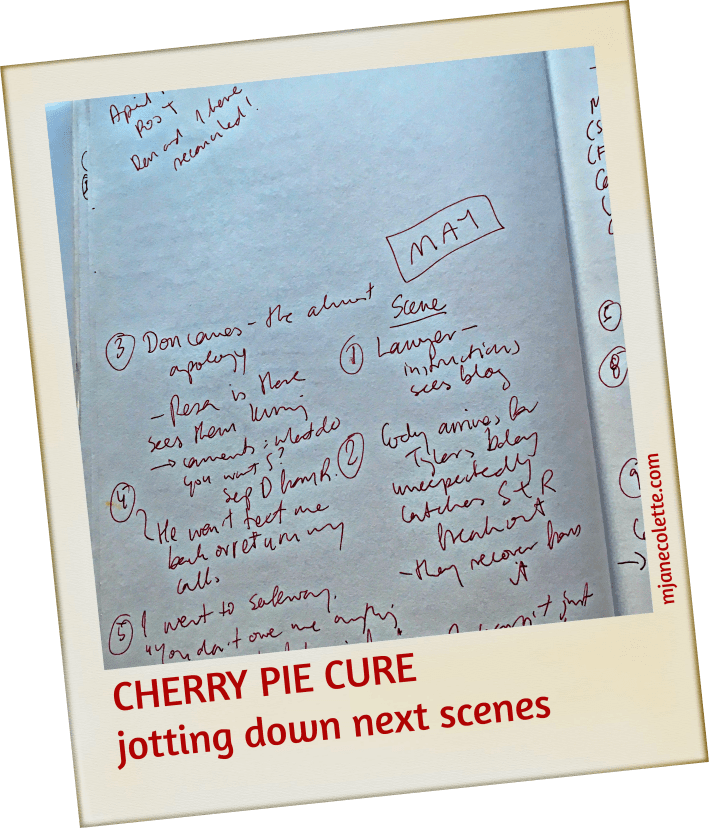 April
Post
Don and I have
reconciled!
MAY
3 Don comes - the almost
apology
- Reza is there
sees them kissing
→ comments: what do
you want S?
Sep D from R.
4
He won't text me
back or return my
calls
5 I went to Safeway.
"You don't owe me anything
Scene
1 Lawyer -
instructions
sees blog
2 Cody arrives for
Tyler's bday
unexpectedly
catches S & R
freak out
- they recover from
it
just
M
(S
(F
5
8
9
→
mjanecolette.com
CHERRY PIE CURE
jotting down next scenes